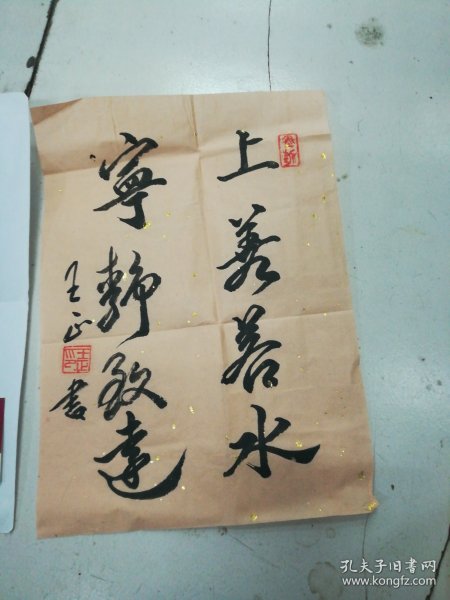 上善若水
寧靜致遠
王正
書
孔夫子旧书网
www.kongfz.com